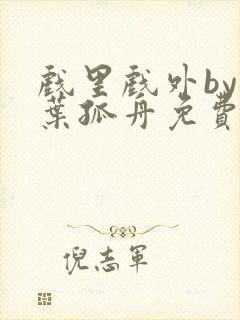 戲里戲外by
葉孤舟免費
倪志軍